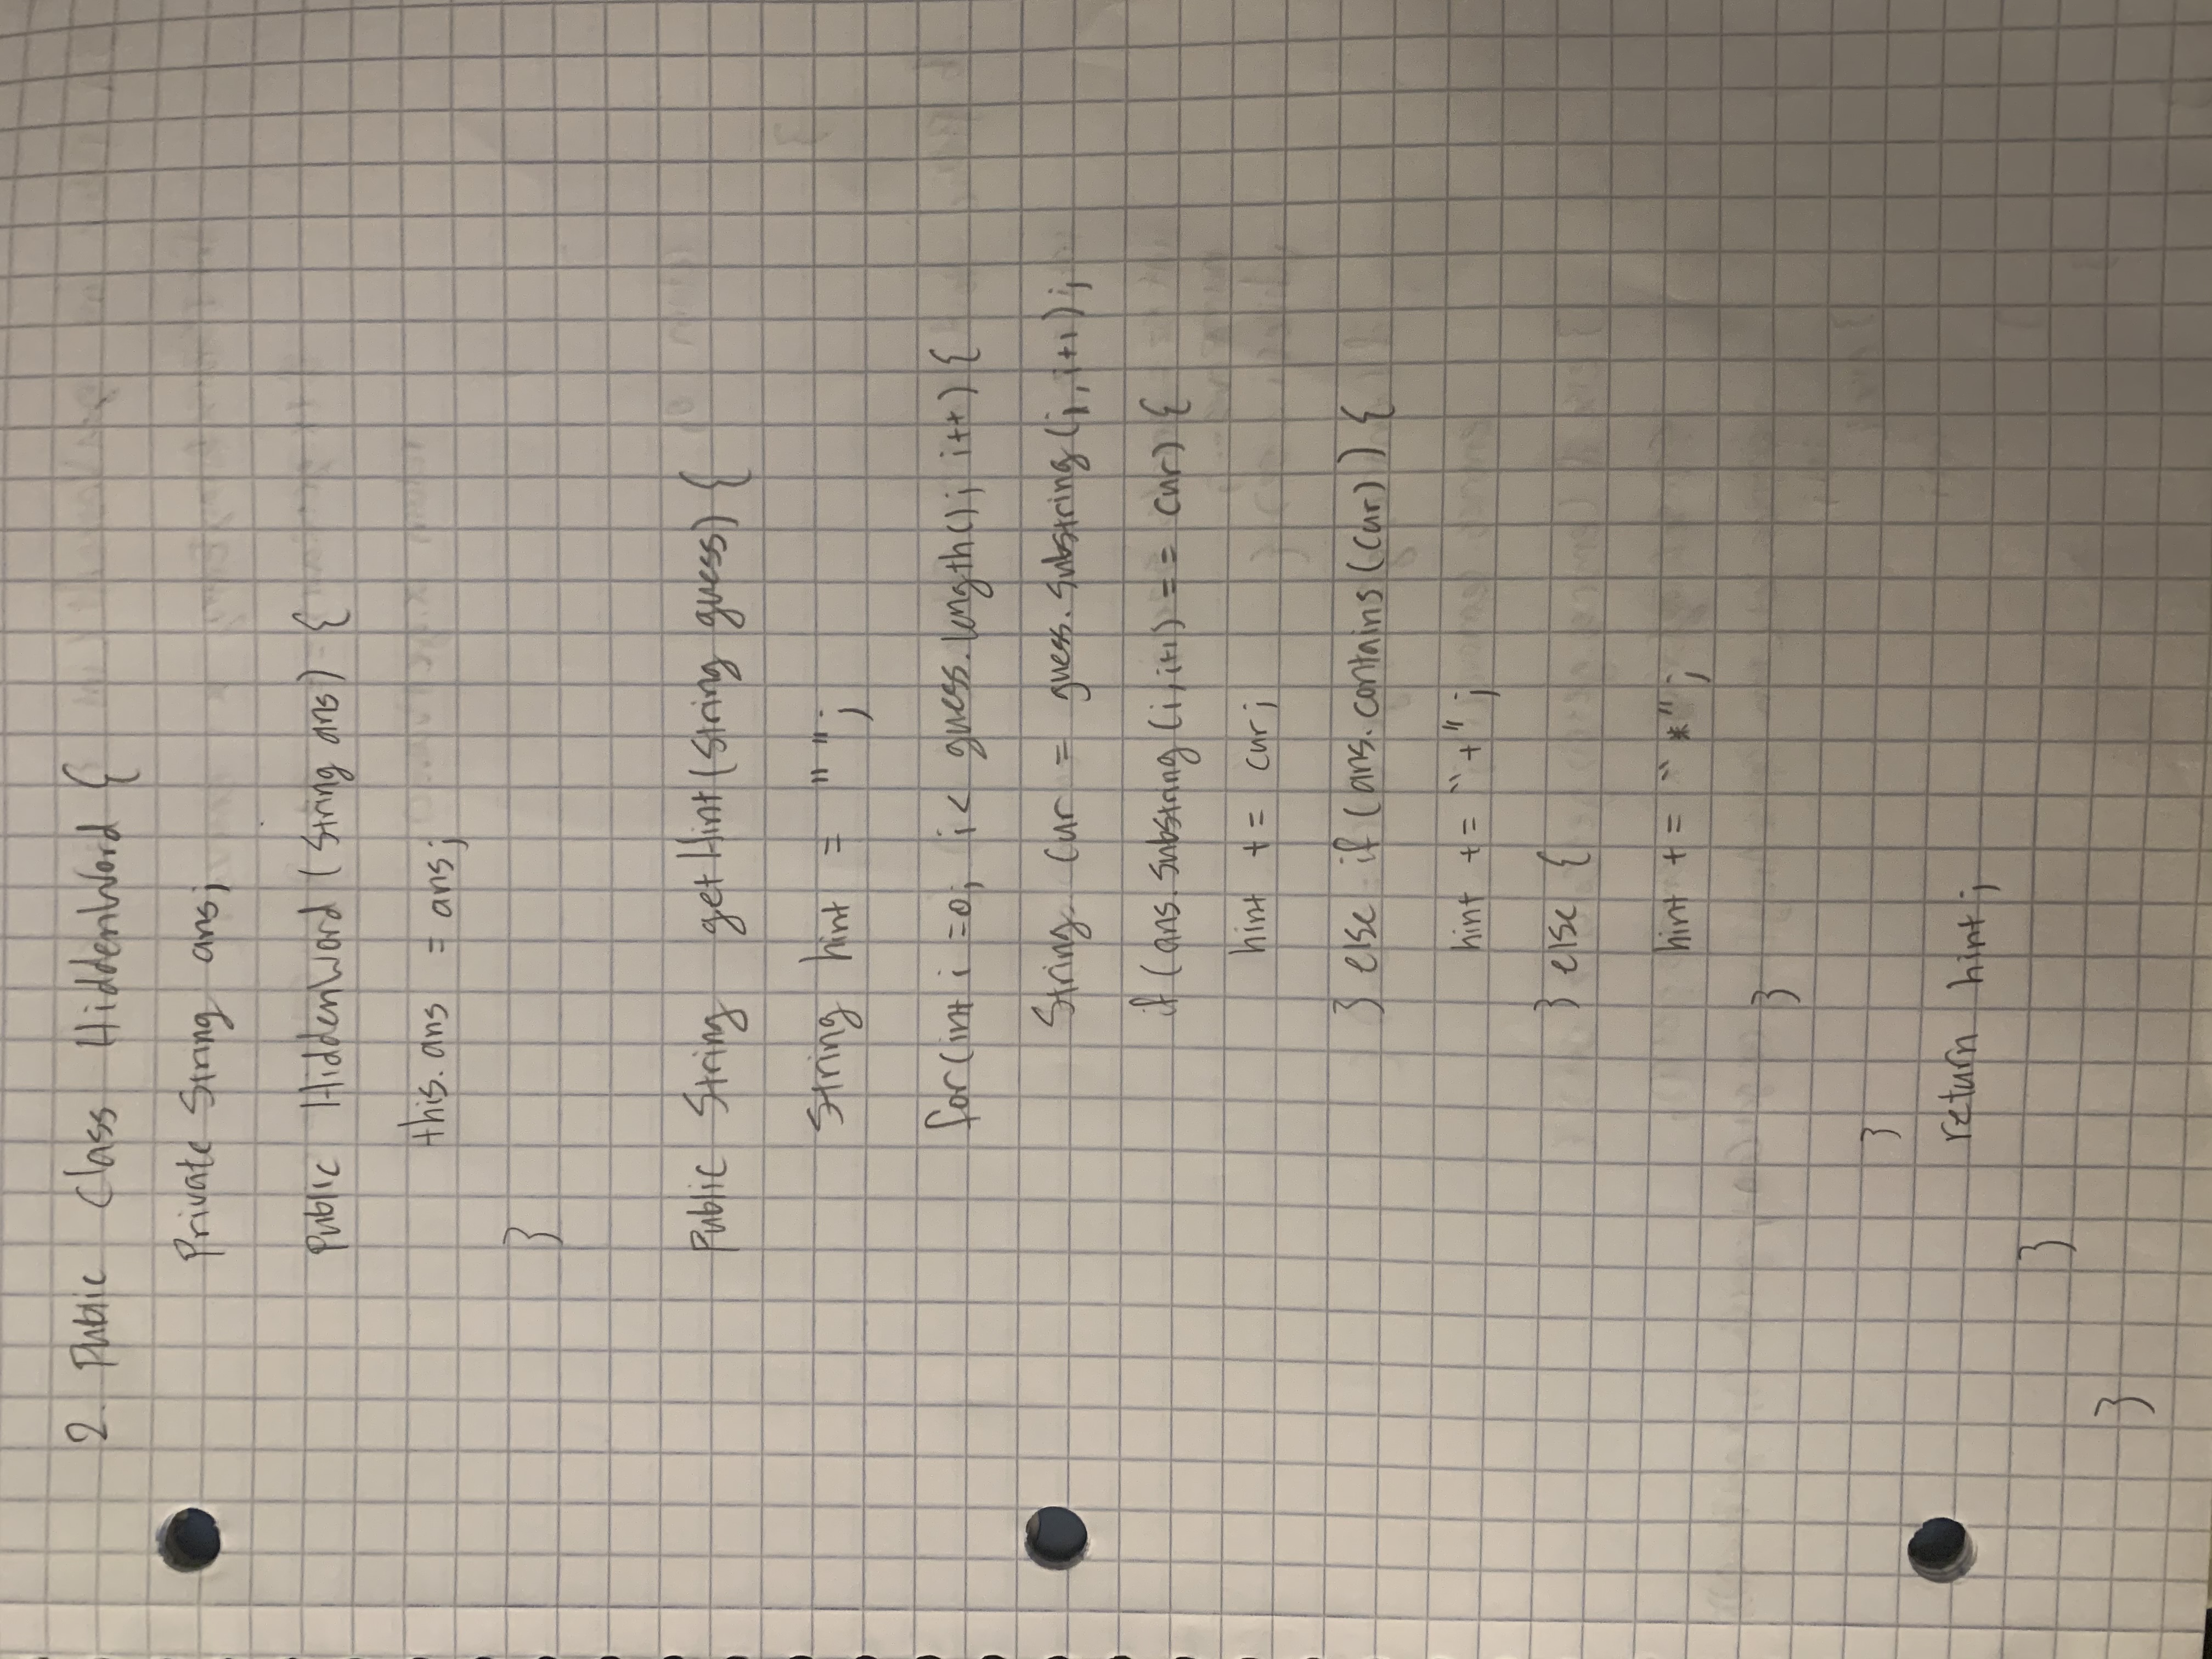 2. Public Class HiddenWord {
Private String ans;
Public HiddenWord (String ans) {
this.ans = ans;
}
Public String getHint (String guess) {
String hint = " ";
for (int i =0; i < guess.length(); i++) {
String cur = guess.substring (i, i+1);
if (ans.substring (i, i+1) == cur) {
hint += cur;
} else if (ans.contains (cur)) {
hint += "+";
} else {
hint += "*";
}
}
return hint;
}
}